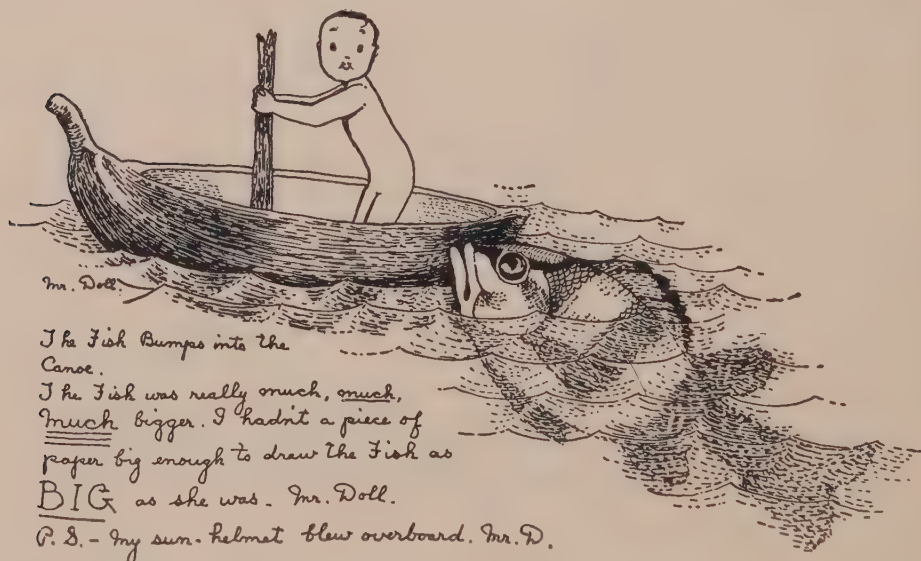 Mr. Doll.
The Fish Bumps into the
Canoe.
The Fish was really much, much,
Much bigger. I hadn't a piece of
paper big enough to draw the Fish as
BIG as she was. Mr. Doll.
P.S. - My sun-helmet blew overboard. Mr. D.